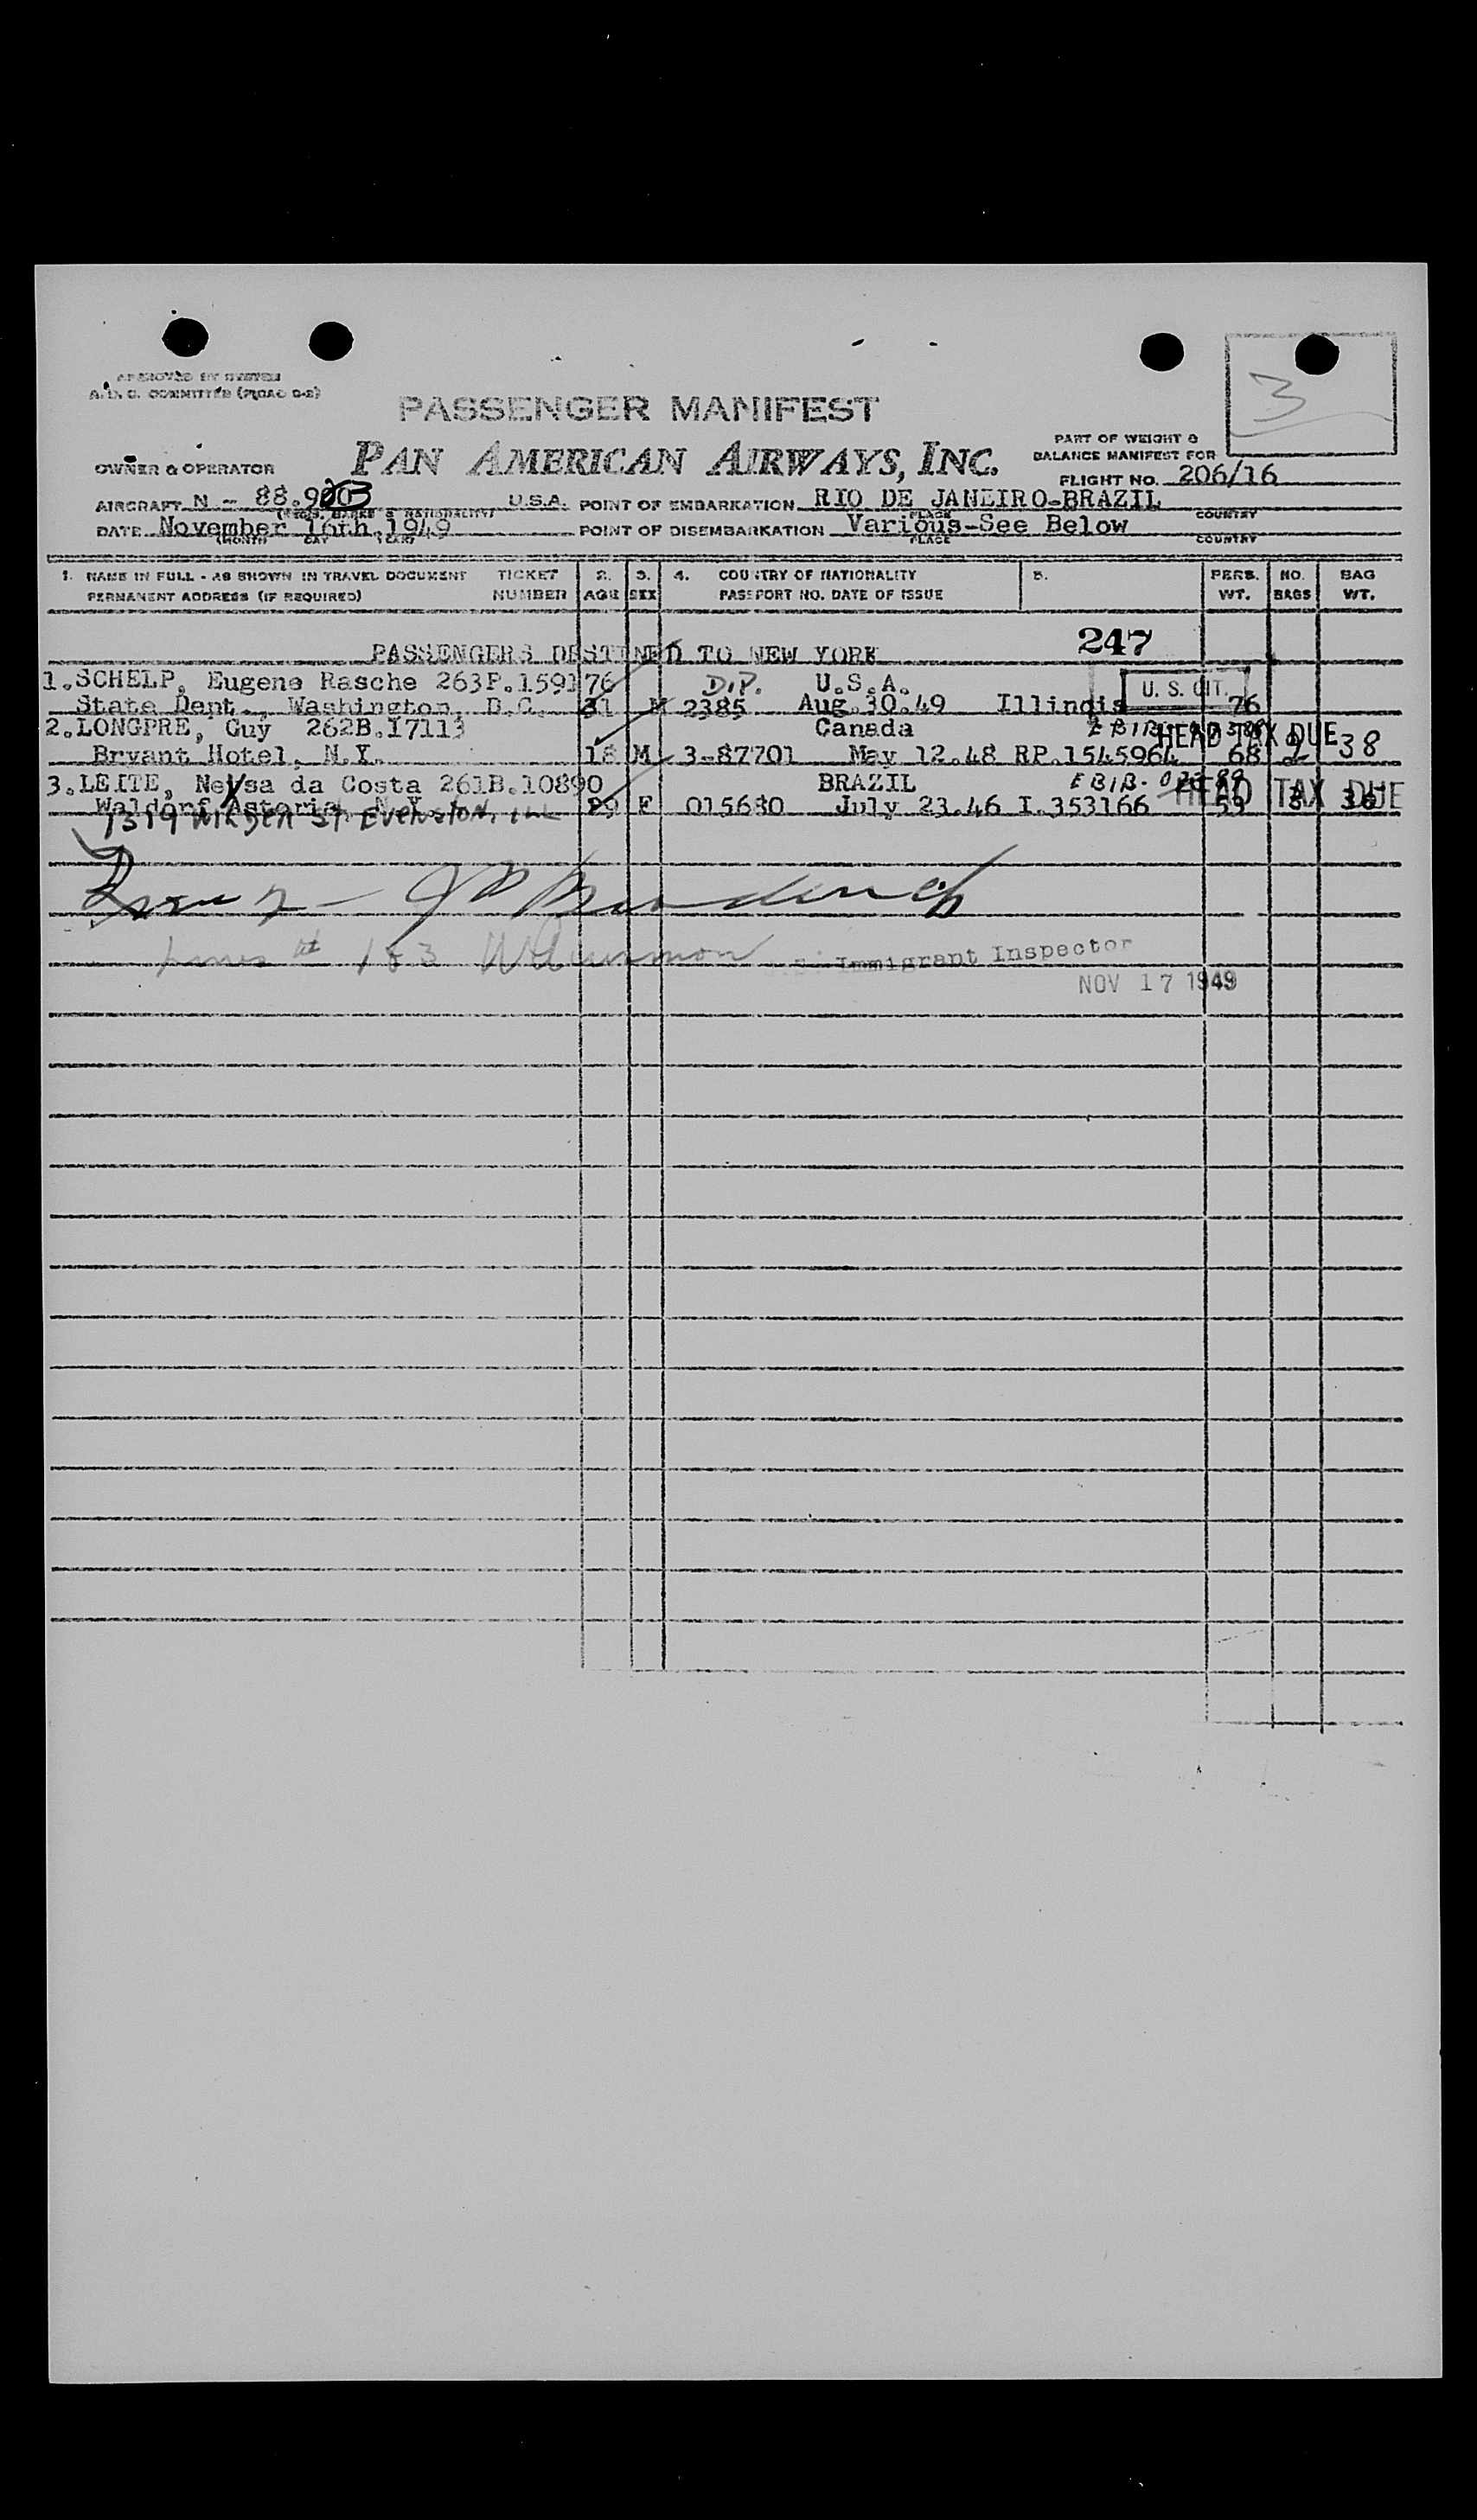 APPROVED BY SYSTEM
A.D.C. COMMITTEE (PROAC G-2)
3
PASSENGER MANIFEST
PAN AMERICAN AIRWAYS, INC.
PART OF WEIGHT &
BALANCE MANIFEST FOR
OWNER & OPERATOR
FLIGHT NO. 206/16
AIRCRAFT N - 88.903 U.S.A. POINT OF EMBARKATION RIO DE JANEIRO-BRAZIL
(REG. MARKS & NATIONALITY) PLACE COUNTRY
DATE November 16th, 1949 POINT OF DISEMBARKATION Various-See Below
(MONTH DAY YEAR) PLACE COUNTRY
1. NAME IN FULL - AS SHOWN IN TRAVEL DOCUMENT TICKET 2. 3. 4. COUNTRY OF NATIONALITY 5. PERS. NO. BAG
PERMANENT ADDRESS (IF REQUIRED) NUMBER AGE SEX PASSPORT NO. DATE OF ISSUE WT. BAGS WT.
247
PASSENGERS DESTINED TO NEW YORK
1.SCHELP, Eugene Rasche 263P.159176 DIP. U.S.A. U. S. CIT.
State Dept., Washington, D.C. 31 M 2385 Aug.30.49 Illinois 76
2.LONGPRE, Guy 262B.17113 Canada HEAD TAX DUE
Bryant Hotel, N.Y. 18 M 3-87701 May 12.48 RP.1545964 68 2 38
3.LEITE, Neysa da Costa 261B.10890 BRAZIL HEAD TAX DUE
Waldorf Astoria, N.Y. 29 F 015680 July 23.46 I.353166 59 3 36
1319 St. Evanston, Ill
1 & 3
Immigrant Inspector
NOV 17 1949